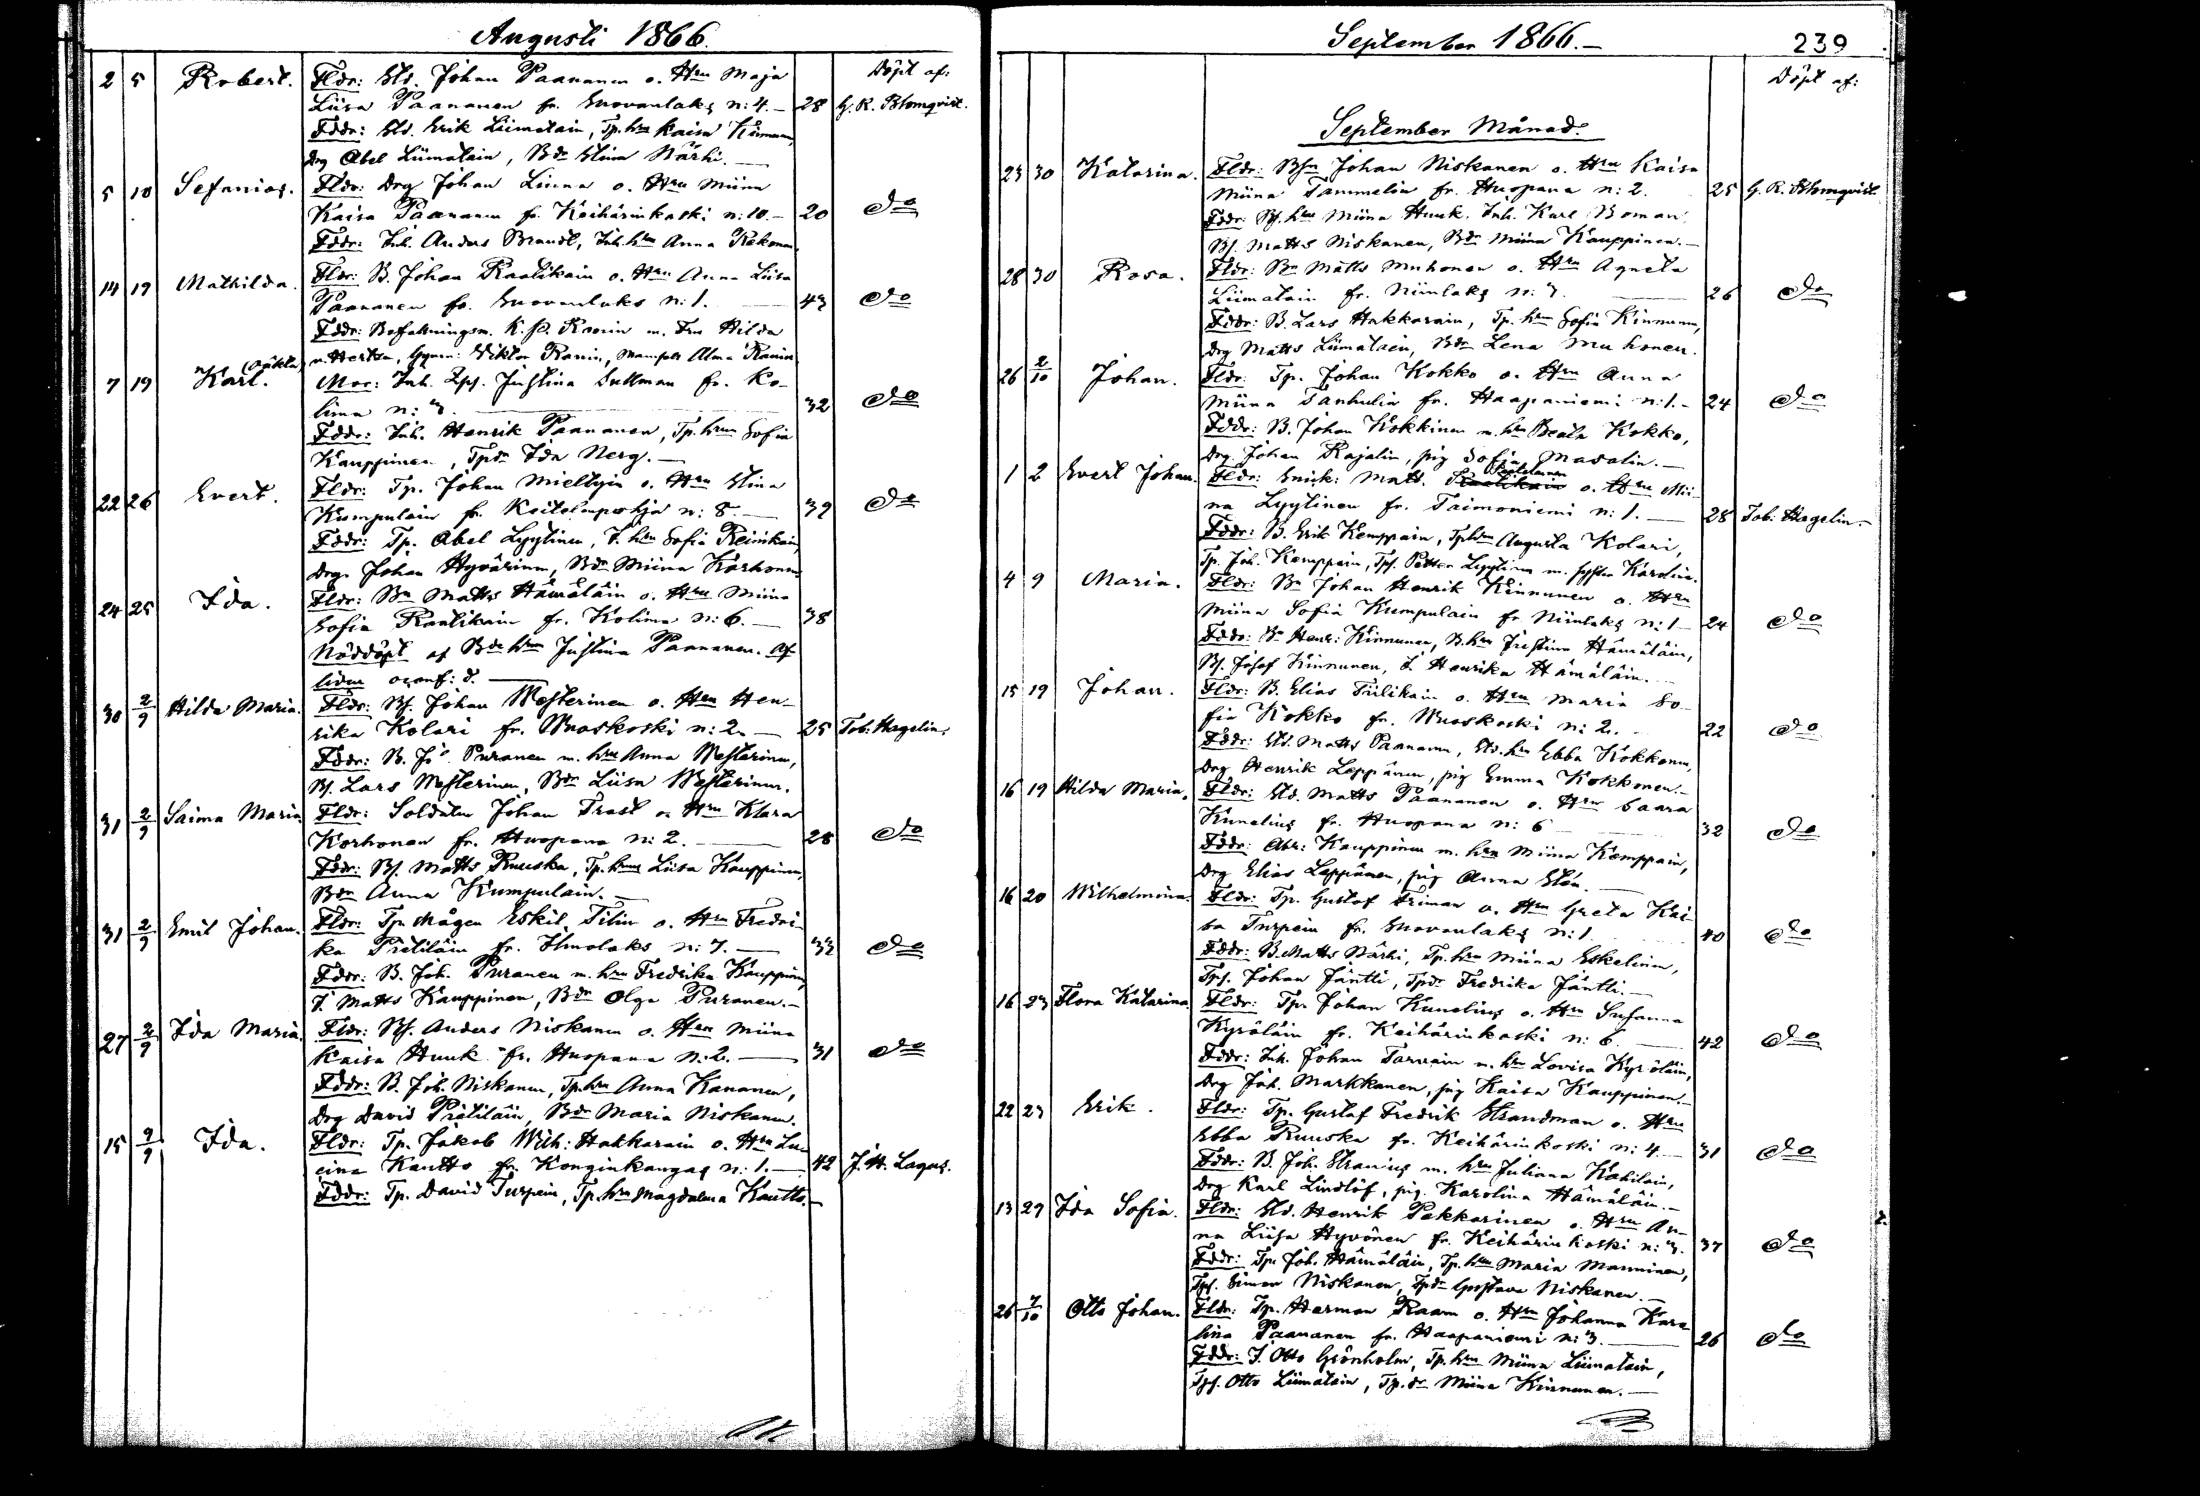 Augusti 1866.
Döpt af:
2 5 Robert. Fldr: Std. Johan Paananen o. Hru Maja
Liisa Paananen fr. Enovanlaks n: 4. — 28 G. R. Blomqvist.
Fddr: Std. Erik Liimatain, Tp. hru Kaisa
Drg Abel Liimatain, Bdr Stina Närhi. —
5 10 Sefanias. Fldr: Drg Johan Linna o. Hru Miina
Kaisa Paananen fr. Keihärinkoski n: 10. — 20 do
Fddr: Inh. Anders Brandt, Inh. hru Anna Kekonen.
14 19 Mathilda. Fldr: B. Johan Raatikain o. Hru Anna Liisa
Paananen fr. Enovanlaks n: 1. — 43 do
Fddr: Befallningsm. K. Ranin m. Fru Hilda
Viktor Ranin, Alma Ranin
7 19 (oäkta) Karl. Mor: Inh. Justina Sullman fr. Ko-
lima n: 3. — 32 do
Fddr: Inh. Henrik Paananen, Tp. hru Sofia
Kauppinen, Tpdr Ida Nerg. —
22 26 Evert. Fldr: Tp. Johan Miettyin o. Hru Stina
Kumpulain fr. Keitelepohja n: 8. — 39 do
Fddr: Tp. Abel Lyytinen, I. hru Sofia Reinikain,
Drg. Johan Hyvärinen, Bdr Miina Korhonen.
24 25 Ida. Fldr: Bn Matts Hämäläin o. Hru Miina
Sofia Raatikain fr. Kolima n: 6. — 38
Nöddöpt af Bde hru Justina Paananen. Af-
liden d. —
30 2/9 Hilda Maria. Fldr: Bf. Johan Westerinen o. Hru Hen-
rika Kolari fr. Wuoskoski n: 2. — 25 Tob: Hagelin.
Fddr: B. Jo Puranen m. hru Anna Westerinen,
Bf. Lars Westerinen, Bdr Liisa Westerinen.
31 2/9 Saima Maria. Fldr: Soldaten Johan Trast o. Hru Klara
Korhonen fr. Huopana n: 2. — 28 do
Fddr: Bf. Matts Ruuska, Tp. hru Liisa Kauppinen,
Bdr Anna Kumpulain. —
31 2/9 Emil Johan. Fldr: Tp Mågen Eskil Tilin o. Hru Fredri-
ka Pietiläin fr. Ilmolaks n: 7. — 33 do
Fddr: B. Joh. Puranen m. hru Fredrika Kauppinen,
I. Matts Kauppinen, Bdr Olga Puranen. —
27 2/9 Ida Maria. Fldr: Bf. Anders Niskanen o. Hru Miina
Kaisa Huuk fr. Huopana n: 2. — 31 do
Fddr: B. Joh. Niskanen, Tp. hru Anna Kananen,
Drg David Pietiläin, Bdr Maria Niskanen.
15 9/9 Ida. Fldr: Tp. Jakob Wilh: Hakkarain o. Hru Lu-
cina Kautto fr. Konginkangas n: 1. — 42 J. H. Lagus.
Fddr: Tp. David Turpein, Tp. hru Magdalena Kautto. —
September 1866. —
239
Döpt af:
September Månad.
23 30 Katarina. Fldr: Bfn Johan Niskanen o. Hru Kaisa
Miina Tammelin fr. Huopana n: 2. 25 G. R. Blomqvist.
Fddr: Bf. hru Miina Huuk. Inh. Karl Boman
Bf. Matts Niskanen, Bdr Miina Kauppinen. —
28 30 Rosa. Fldr: Bn Matts Muhonen o. Hru Agneta
Liimatain fr. Niinlaks n: 7. — 26 do
Fddr: B. Lars Hakkarain, Tp. hru Sofia Kinnunen,
Drg Matts Liimatain, Bdr Lena Muhonen.
26 2/10 Johan. Fldr: Tp. Johan Kokko o. Hru Anna
Miina Tanhulin fr. Haapaniemi n: 1. — 24 do
Fddr: B. Johan Kokkinen m. hru Beata Kokko,
Drg. Johan Rajalin, pig Sofia Masalin. —
1 2 Evert Johan. Fldr: Snick: Matts. o. Hru Mii-
na Lyytinen fr. Taimoniemi n: 1. — 28 Tob: Hagelin. —
Fddr: B. Erik Kemppain, Tp hru Augusta Kolari,
Tp. Joh. Kemppain, Tpf. Petter Lyytinen m. syster Karolina.
4 9 Maria. Fldr: Bn Johan Henrik Kinnunen o. Hru
Miina Sofia Kumpulain fr Niinlaks n: 1 — 24 do
Fddr: Bn Henr: Kinnunen, B. hru Justina Hämäläin,
Bf. Josef Kinnunen, I. Henrika Hämäläin. —
15 19 Johan. Fldr: B. Elias Tiilikain o. Hru Maria So-
fia Kokko fr. Wuoskoski n: 2. 22 do
Fddr: Std. Matts Paananen, Std. hru Ebba Kokkonen,
Drg Henrik Leppänen, pig Emma Kokkonen. —
16 19 Hilda Maria. Fldr: Std. Matts Paananen o. Hru Saara
Kunelius fr. Huopana n: 6 — 32 do
Fddr: Abr: Kauppinen m. hru Miina Kemppain,
Drg Elias Leppänen, pig Anna Stén. —
16 20 Wilhelmina. Fldr: Tp. Gustaf Friman o. Hru Greta Kai-
sa Turpein fr. Enovanlaks n: 1. 40 do
Fddr: B. Matts Närhi, Tp. hru Miina Eskelinen,
Tpf. Johan Jäntti, Tpdr Fredrika Jäntti. —
16 23 Flora Katarina. Fldr: Tp. Johan Kunelius o. Hru Susanna
Kyröläin fr. Keihärinkoski n: 6. — 42 do
Fddr: Inh. Johan Tarvain m. hru Lovisa Kyröläin,
Drg Joh. Markkanen, pig Kaisa Kauppinen. —
22 23 Erik. Fldr: Tp. Gustaf Fredrik Strandman o. Hru
Ebba Ruuska fr. Keihärinkoski n: 4. — 31 do
Fddr: B. Joh. Stranius m. hru Juliana Kahilain,
Drg Karl Lindlöf, pig. Karolina Hämäläin. —
13 29 Ida Sofia. Fldr: Std. Henrik Pekkarinen o. Hru An-
na Liisa Hyvönen fr. Keihärinkoski n: 3. 37 do
Fddr: Tp. Joh. Hämäläin, Tp. hru Maria Manninen,
Tpf. Simon Niskanen, Tpdr Gustava Niskanen. —
26 7/10 Otto Johan. Fldr: Tp. Herman Raam o. Hru Johanna Karo-
lina Paananen fr. Haapaniemi n: 3. — 26 do
Fddr: I. Otto Grönholm, Tp. hru Miina Liimatain,
Tpf. Otto Liimatain, Tp. dr Miina Kinnunen. —